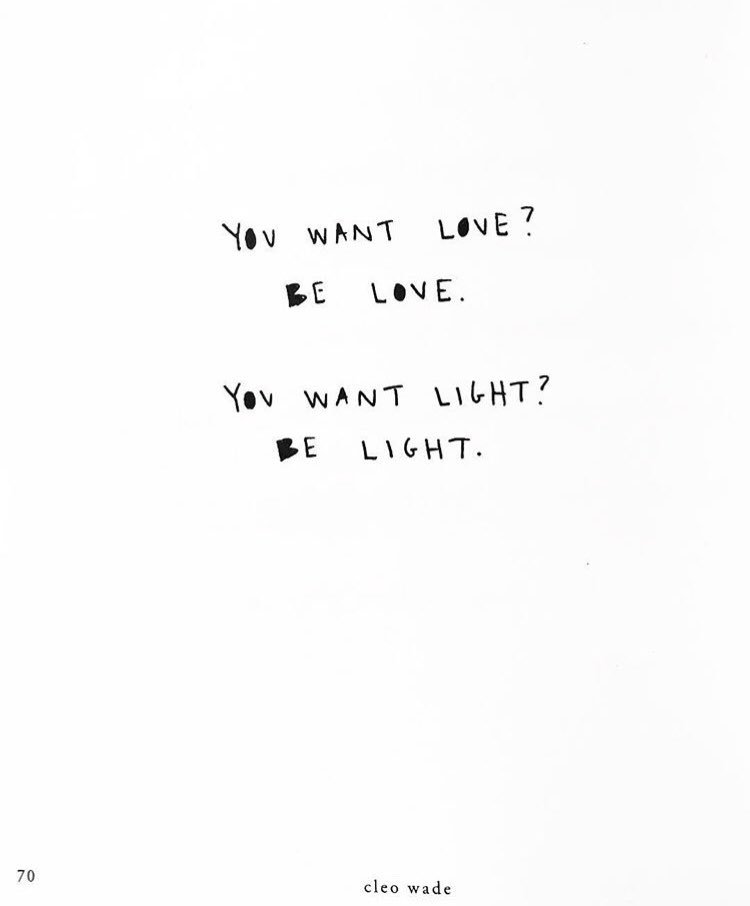 YOU WANT LOVE?
BE LOVE.
YOU WANT LIGHT?
BE LIGHT.
70
cleo wade